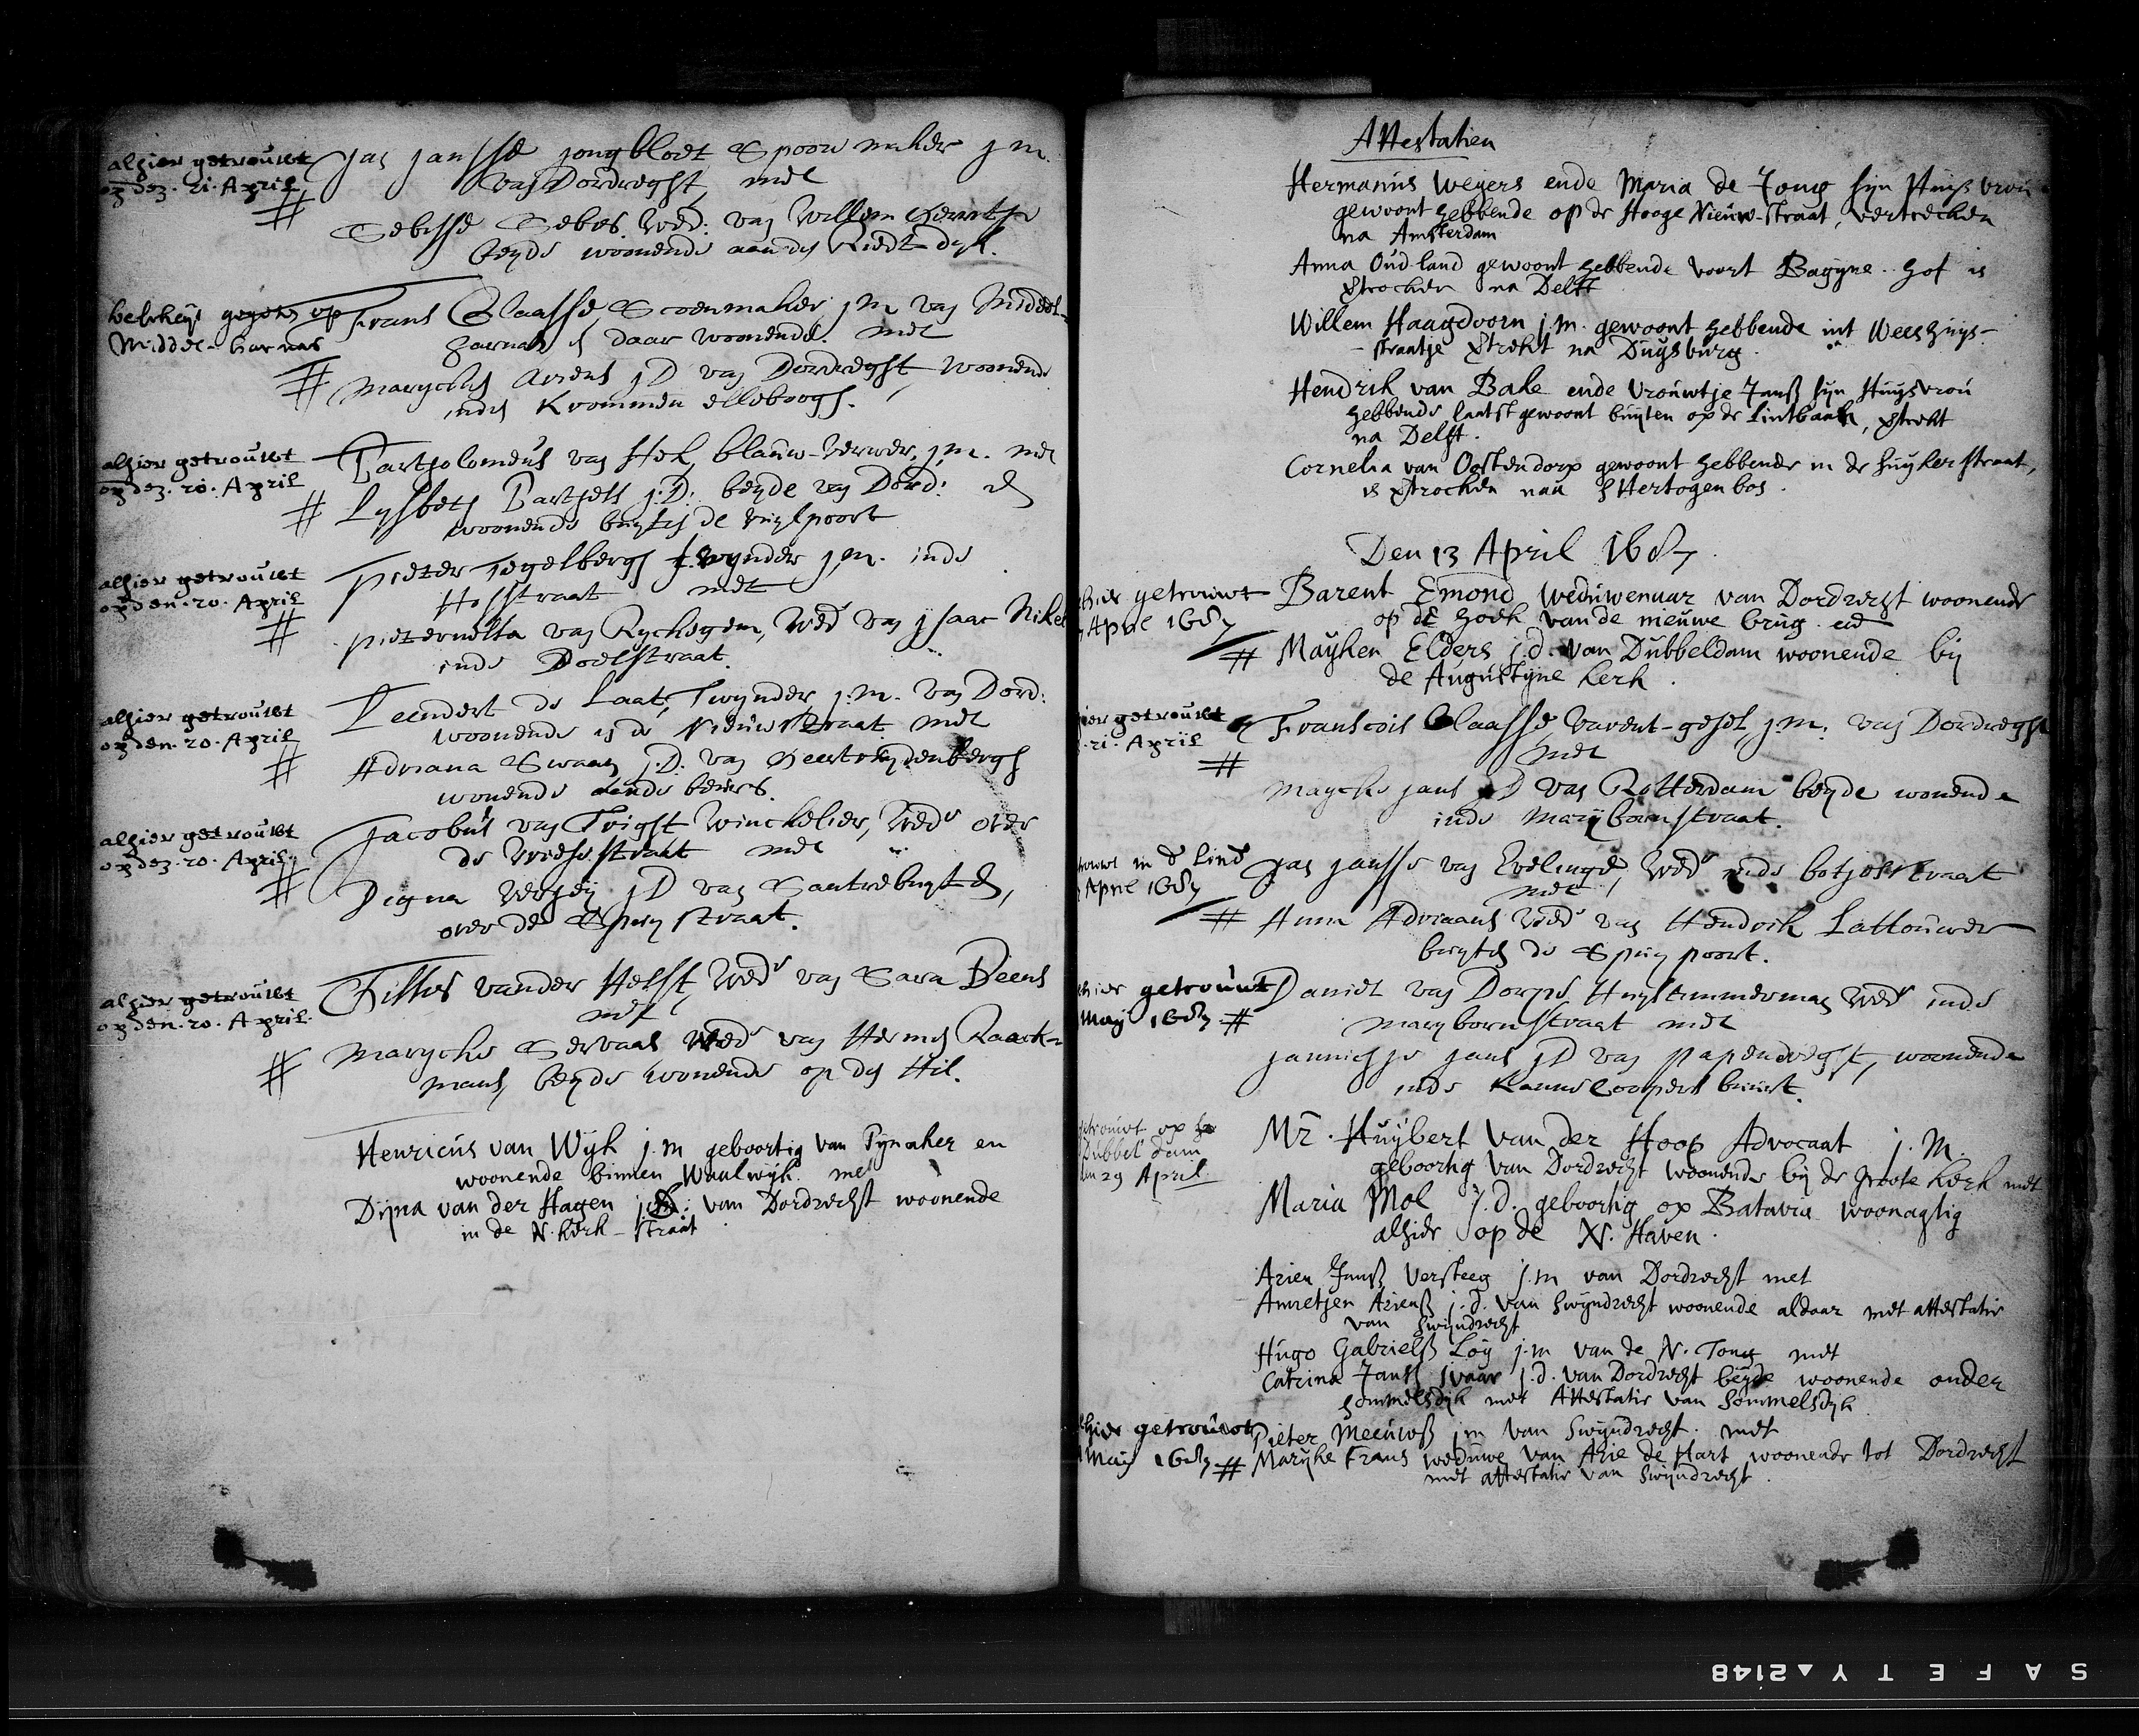 alhier getrouwt
op den. 21. April
#
Jan Jansse Jongbloet Spoormaker j m
van Dordreght, met
Sebesse Sebes. Wed: van Willem Gerritse
beyde woonende aan den Riedt dyk.
bescheyt gegeven op
Middel-harnas
#
Frans Claasse, Scoenmaker, j m van Middel-
harnas en daar woonende. met
Marychen Ariens j D van Dordreght, woonende
inden Krommen elleboogh.
alhier getrouwt
op den. 20. April
#
Bartholomeus van Hek, blauw-verwer, j.m. met
Lysbeth Barthels j.D: beyde van Dord: en
woonende buyten de vuylpoort
alhier getrouwt
op den. 20. April
#
Pieter Tegelbergh twynder j.m. inde
Hofstraat met
Pieternella van Ryckegem, Wed van Jsaac
inde Doelstraat.
alhier getrouwt
op den. 20. April
#
Leendert de Laat, Twynder j:m. van Dord:
woonende in de Nieuwstraat met
Adriana Swaan j.D. van Geertruydenbergh
wonende aende beurs.
alhier getrouwt
op den. 20. April.
#
Jacobus van Trigst Winckelier, Wedr over
de Vriesestraat met
Digna Verheij j D van
over de Spuy straat.
alhier getrouwt
op den. 20. April.
#
vander Helst, Wedr van Sara Deens
met
Maryche Servaas Wedr van Hermen Raack-
mans, beyde wonende op den Hil.
Henricus van Wijk j.m geboortig van Pynaker en
woonende binnen Waalwijk. met
Dijna van der Hagen j.D: van Dordrecht woonende
in de N. Kerk-straat
Attestatien
Hermanus Weyers ende Maria de Jong sijn Huys vrou
gewoont hebbende op de Hooge Nieuw-straat, vertrecken
na Amsterdam
Anna Oud-land gewoont hebbende voort Bagyne-hof is
vtrocken na Delft
Willem Haagdoorn j.m. gewoont hebbende int Weeshuys-
straatje vtrekt na Duysburg.
Hendrik van Bake ende Vrouwtje Janß sijn Huysvrou
hebbende laatst gewoont buyten op de Lintbaan, vtrekt
na Delft.
Cornelia van Oostendorp gewoont hebbende in de suyker straat,
is vtrocken naa sHertogenbos.
Den 13 April 1687.
hier getrouwt
April 1687
#
Barent Emond weduwenaar van Dordrecht woonende
op de hoek van de nieuwe brug en
Mayken Elders j.d. van Dubbeldam woonende bij
de Augustyne kerk.
hier getrouwt
21. April
#
Franscois Claasse, varent-gesel j.m. van Dordreght
met
Mayche Jans j D van Rotterdam beyde wonende
inde Marijbornstraat.
trouwt in d Lind
April 1687
#
Jan Jansse van Evelinge, Wedr inde botjesstraat
met
Anna Adriaans Wedr van Hendrik Lattouwer
buyten de Spuy poort.
hier getrouwt
May 1687. #
Daniel van Dorpe, Huystimmerman Wedr inde
Marybornstraat met
Jannichje Jans j D van Papendreght, woonende
inde buurt.
getrouwt op
Dubbel dam
den 29 April.
Mr. Huijbert van der Hoop Advocaat j. M.
geboortig van Dordrecht woonende bij de groote kerk met
Maria Mol j.d. geboortig op Batavia woonagtig
alhier op de N. Haven.
Arien Janß Versteeg j.m van Dordrecht met
Annetjen Arienß j.d. van Swijndrecht woonende aldaar met attestatie
van Swijndrecht
Hugo Gabrielß Loy j.m van de N. Tong met
Catrina Janß j.d. van Dordrecht beyde woonende onder
Sommelsdijk met Attestatie van Sommelsdijk
hier getrouwt
May 1687 #
Pieter Meeuwß j m van Swijndrecht. met
Maryke Frans weduwe van Arie de Hart woonende tot Dordrecht
met attestatie van Swijndrecht.
SAFETY▲2148